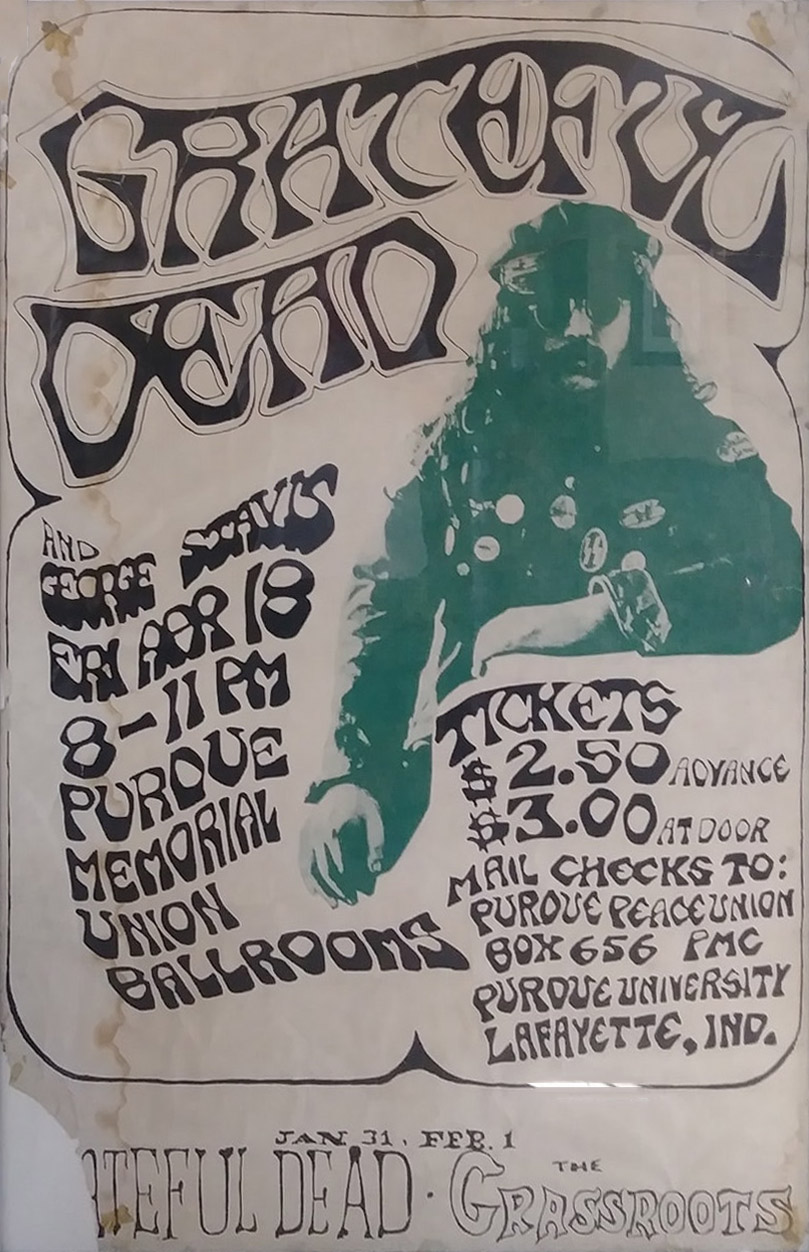 GRATEFUL
DEAD
AND
GEORGE STAVIS
FRI APR 18
8-11 PM
PURDUE
MEMORIAL
UNION
BALLROOMS
TICKETS
$2.50 ADVANCE
$3.00 AT DOOR
MAIL CHECKS TO:
PURDUE PEACE UNION
BOX 656 PMC
PURDUE UNIVERSITY
LAFAYETTE, IND.
JAN 31, FEB. 1
ATEFUL DEAD · THE GRASSROOTS